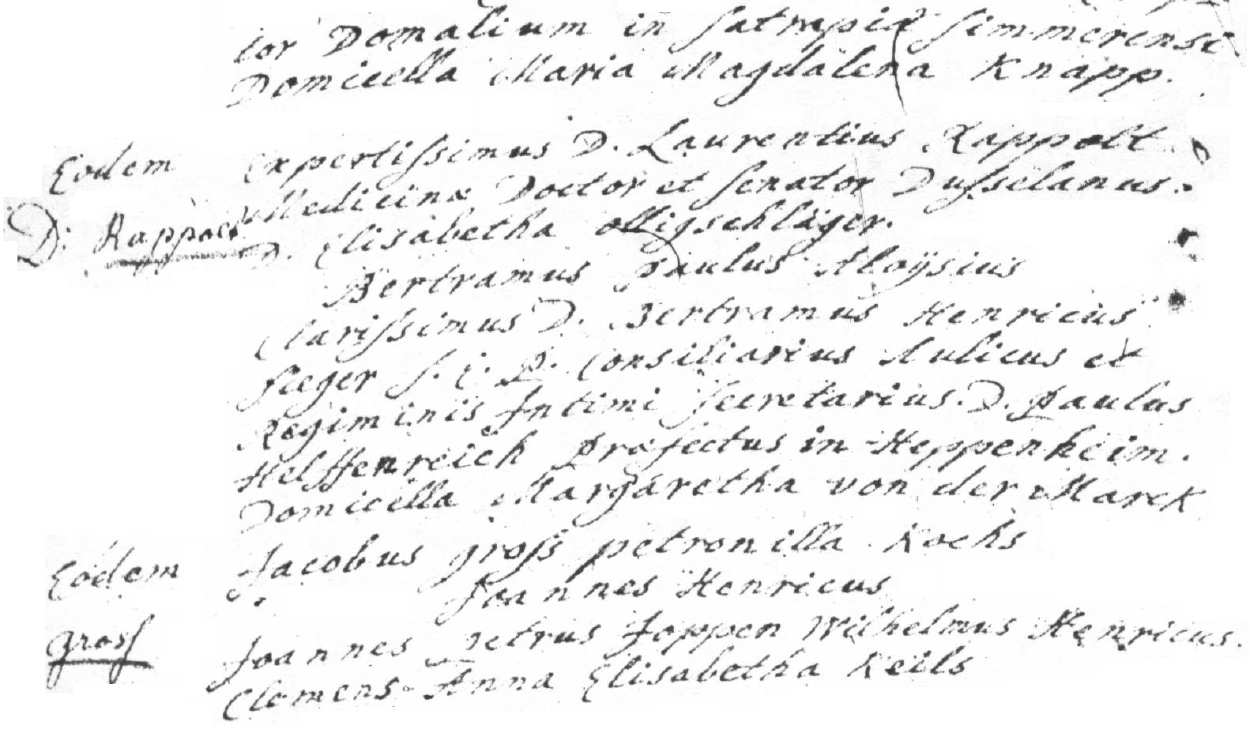 tor Domalium in satrapia Simmerensi
Domicella Maria Magdalena Knapp.
Eodem Expertissimus D. Laurentius Rappolt
Medicinæ Doctor et Senator Dusselanus.
D. Rappolt D. Elisabetha olligschläger.
Bertramus Paulus Aloÿsius
Clarissimus D. Bertramus Henricus
S. C. P. Consiliarius Aulicus et
Regiminis Intimi Secretarius. D. Paulus
Helffenreich Præfectus in Heppenheim.
Domicella Margaretha von der Marck
Eodem Jacobus gross petronilla Kochs
Joannes Henricus
gross Joannes Petrus Joppen Wilhelmus Henricus.
Clemens Anna Elisabetha Keils